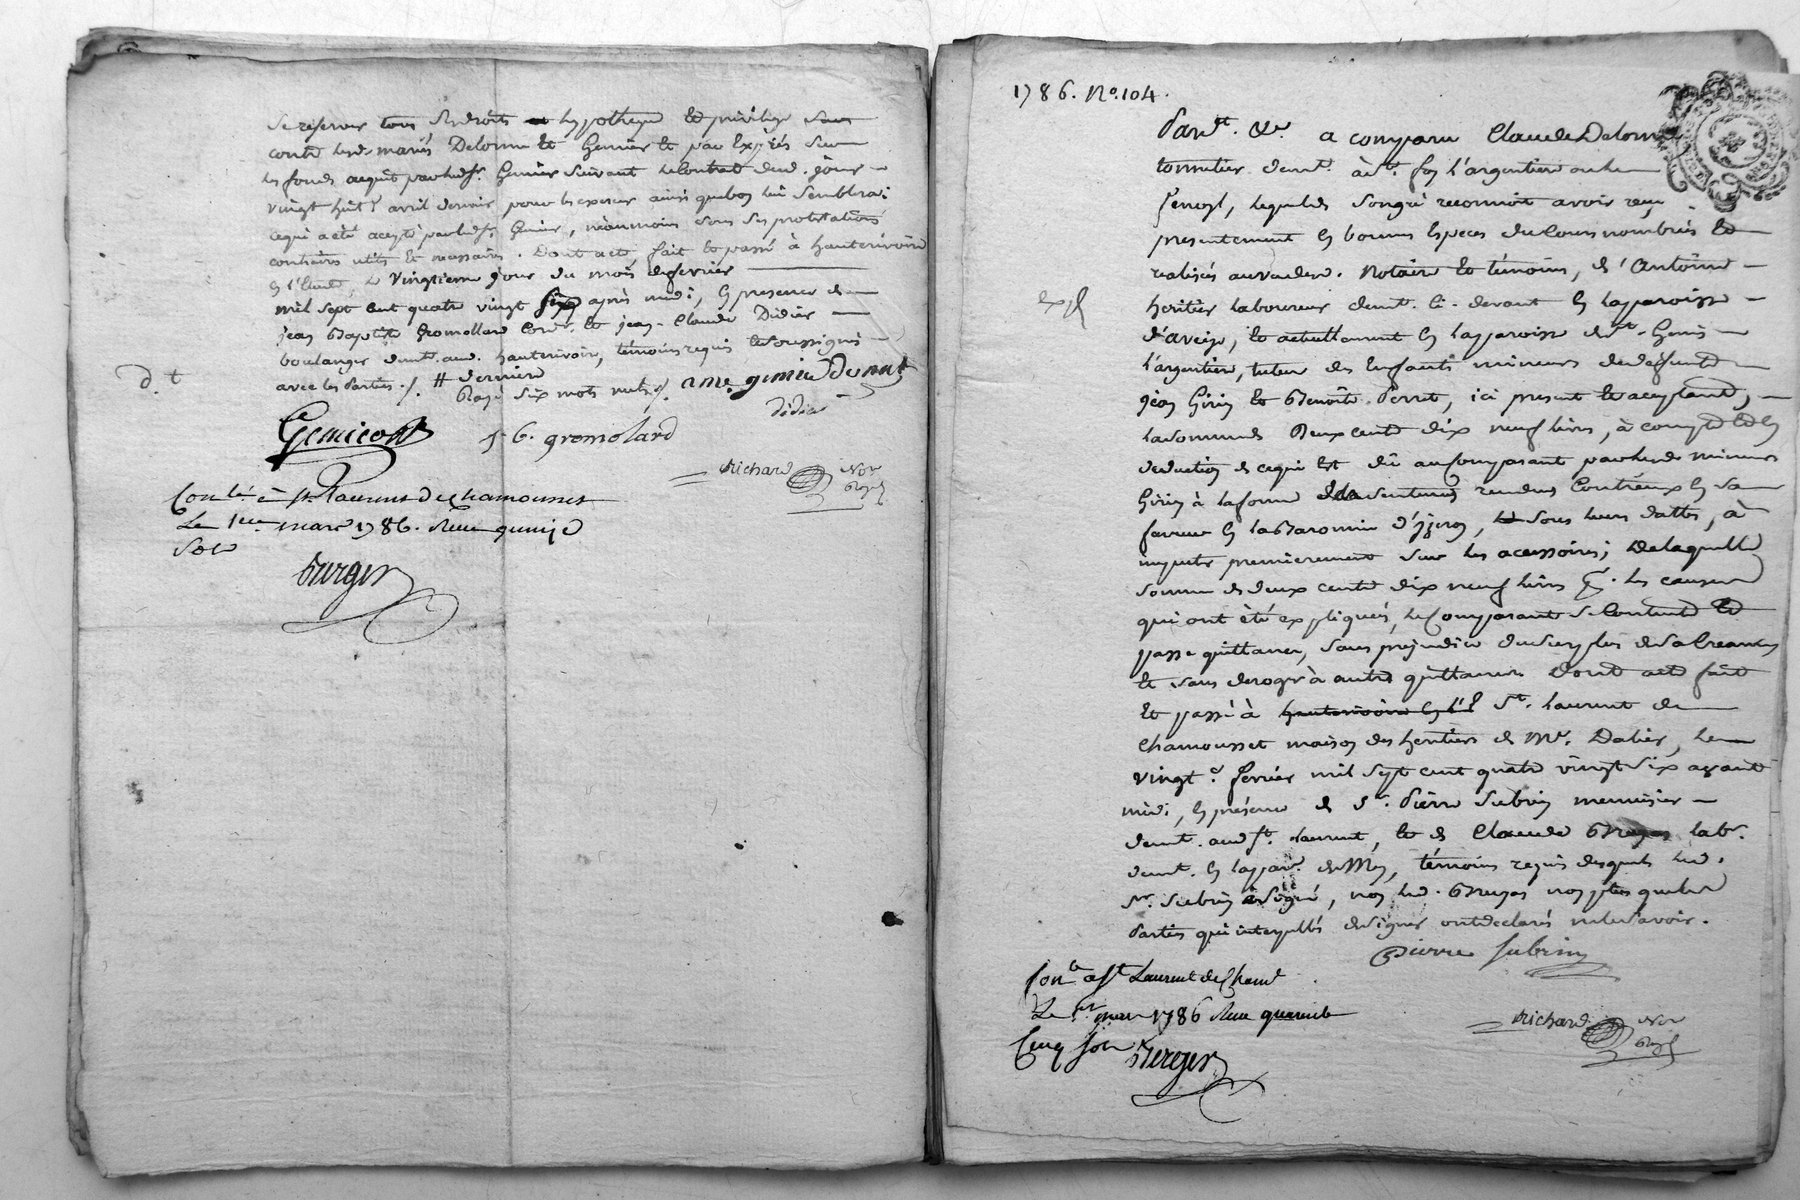 se réserver tous ses droits hypotheque et privilege sur
contre lesd. mariés Delorme et Genier et par Exprés sur
les fonds acquit par led. sr. Genier suivant le contrat dud. jour
vingt huit avril dernier pour les exercer ainsi que bon lui semblera;
ce qui a été accepté par led. sr. Genier, néanmoins sous ses protestations
contraires utiles et necessaires. Dont acte, fait et passé à hauterivoire
le vingtieme jour du mois de fevrier
mil sept cent quatre vingt six après midi, en presence de
jean Baptiste Gromollard et jean-Claude Didier
boulanger demt. aud. hauterivoire, témoins requis et soussignés
avec les Parties ./. # derniere
Rayé six mots nuls ./.
d. t
didier
J B. gromolard
Richard Nore
Royal
Conlé. à st. Laurent de chamousset
Le 1er mars 1786. Reçu quinze
Sols
Berger
1786. No. 104.
Pardt. &c. a comparu Claude Delorme
demt. à st. foy l'argentiere
lequel de son gré reconnoit avoir reçu
presentement en bonnes especes du cours nombrées et
realisées au vu dud. Notaire et témoins, d'Antoine
heritier laboureur demt. ci-devant en la paroisse
d'aveize, et actuellement en la paroisse de st. Genis
l'argentiere, tuteur des Enfants mineurs de deffunts
jean Giriy et Benoite Perret, ici present et acceptant,
la somme de Deux cents dix neuf livres, à compte et en
deduction de ce qui est dû au comparant par lesd. mineurs
Giriy à la forme des sentences rendues contr'eux en sa
faveur en la Baronnie d'yzeron, sous leurs dattes, à
imputer premierement sur les accessoires; De laquelle
somme de deux cents dix neuf livres pr. les causes
qui ont été expliquées, le Comparant se contente et
passe quittance, sans prejudice du surplus de sa creance
et sans deroger à autres quittances. Dont acte fait
et passé à hauterivoire en l' st. Laurent de
Chamousset maison des heritiers de Mr. Dalier, le
vingt fevrier mil sept cent quatre vingt six avant
midi, en présence de sr. Pierre Subrin menuisier
demt. aud. st. Laurent, et de Claude Bruyas labr.
demt. en la par. de Mey, témoins requis desquels led.
sr. Subrin a signé, non led. Bruyas non plus que les
Parties qui interpellés de signer ont declarés ne le savoir.
Pierre Subrin
Conlé a st Laurent de Cham
Le 1er mars 1786 Reçu quarante
Cinq sols Berger
Richard Nore
Royal